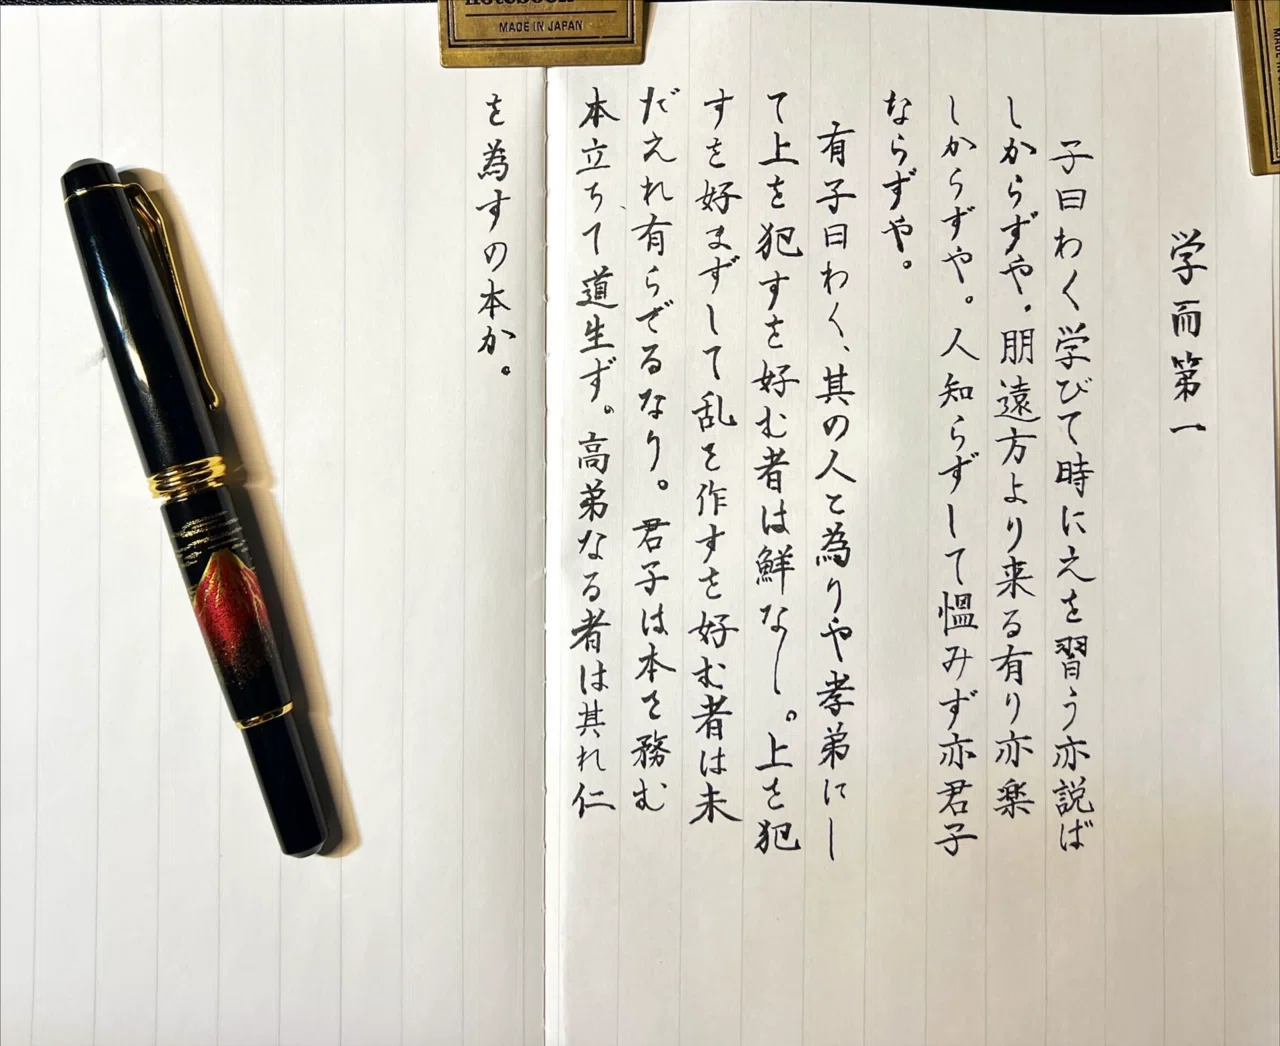 学而第一
子曰わく学びて時にえを習う亦説ば
しからずや。朋遠方より来る有り亦楽
しからずや。人知らずして慍みず亦君子
ならずや。
有子曰わく、其の人と為りや孝弟にし
て上を犯すを好む者は鮮なし。上を犯
すを好まずして乱を作すを好む者は未
だえれ有らでるなり。君子は本を務む
本立ちて道生ず。高弟なる者は其れ仁
を為すの本か。
notebook
MADE IN JAPAN